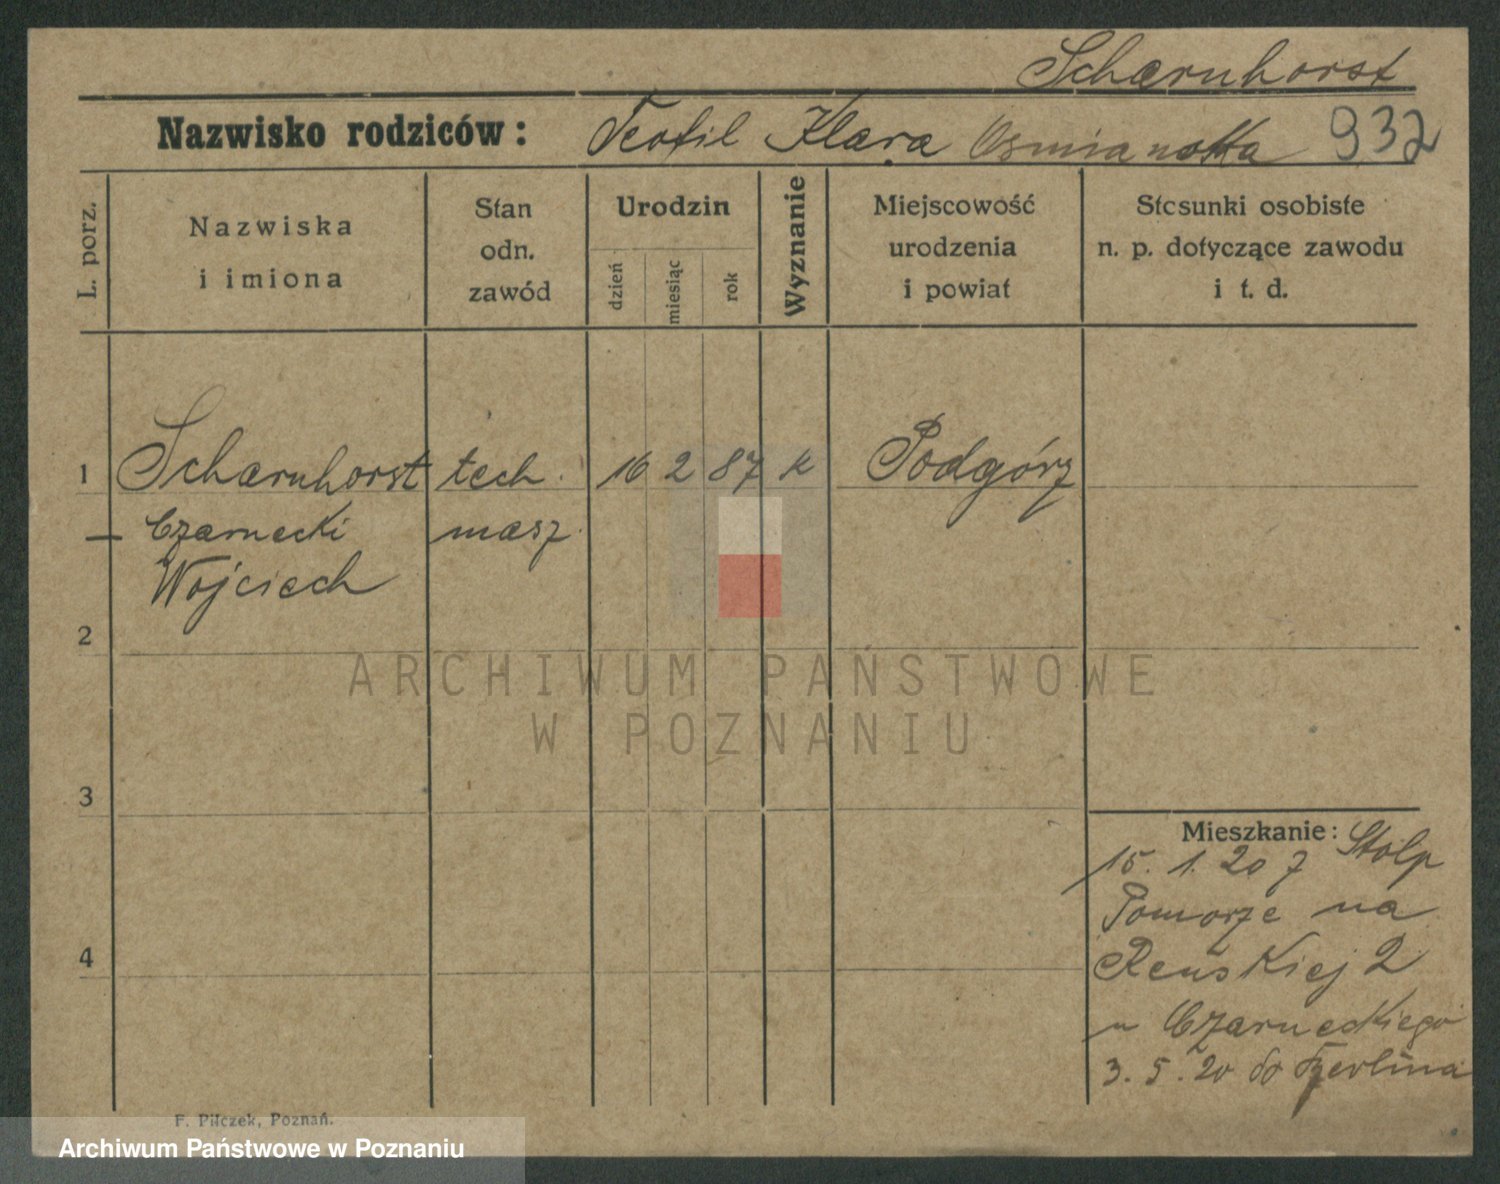 Scharnhorst
Nazwisko rodziców: Teofil Klara 932
L. porz.
Nazwiska
i imiona
Stan
odn.
zawód
Urodzin
dzień
miesiąc
rok
Wyznanie
Miejscowość
urodzenia
i powiat
Stosunki osobiste
n. p. dotyczące zawodu
i t. d.
1 Scharnhorst tech. 16 2 87 k Podgórz
— Czarnecki masz.
Wojciech
2
ARCHIWUM PAŃSTWOWE
W POZNANIU
3
Mieszkanie: Stolp
15. 1. 20 z
Pomorze na
Reńskiej 2
u Czarneckiego
3. 5. 20 do Berlina
4
F. Pilczek, Poznań.
Archiwum Państwowe w Poznaniu